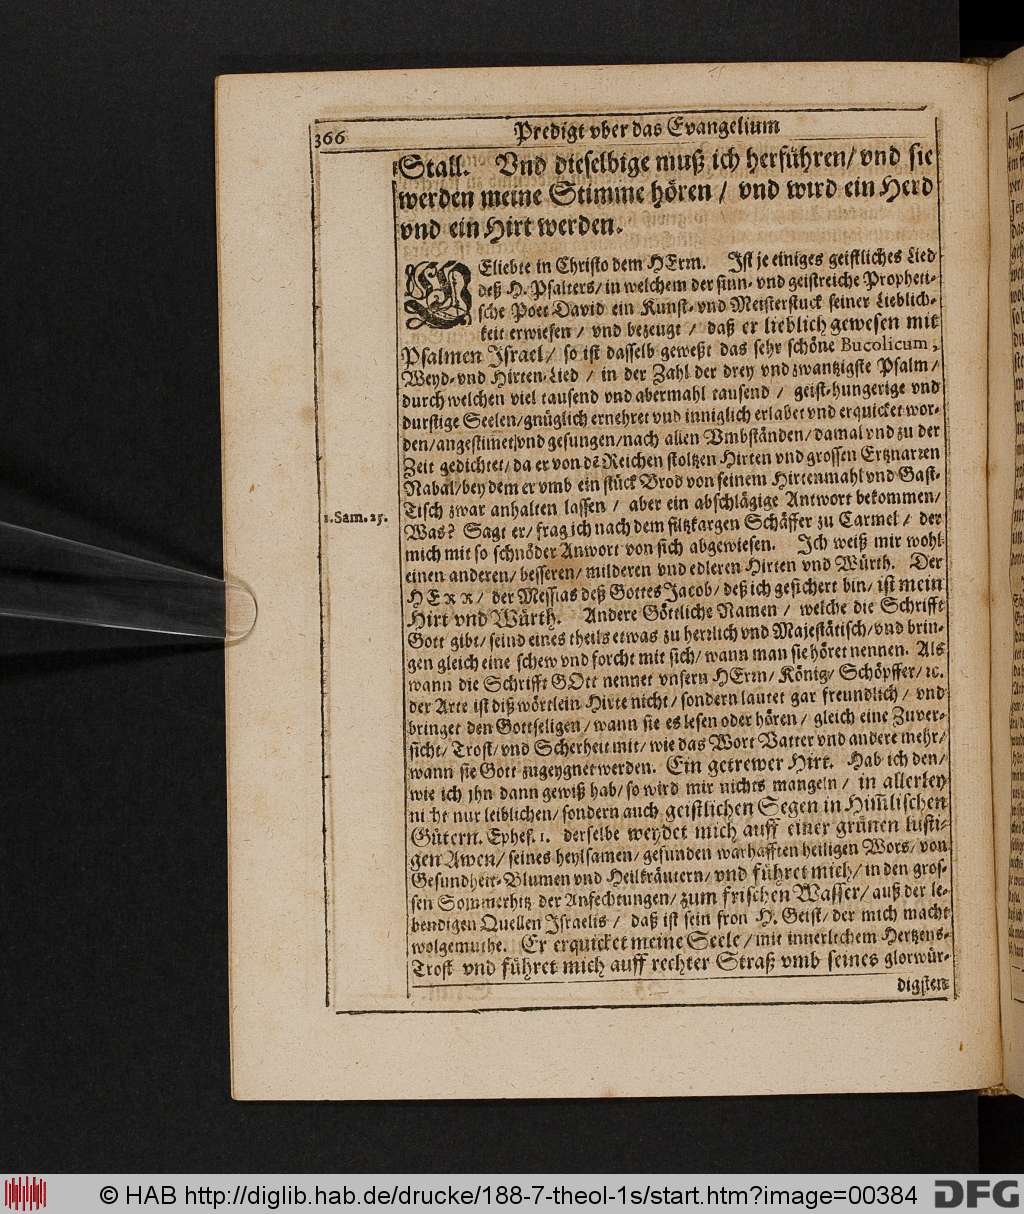 366
Predigt vber das Evangelium
Stall. Vnd dieselbige muß ich herführen/ vnd sie
werden meine Stimme hören / vnd wird ein Herd
vnd ein Hirt werden.
GEliebte in Christo dem HErrn. Ist je einiges geistliches Lied
deß H. Psalters/ in welchem der sinn- vnd geistreiche Propheti-
sche Poet David ein Kunst- vnd Meisterstuck seiner Lieblich-
keit erwiesen / vnd bezeugt / daß er lieblich gewesen mit
Psalmen Israel/ so ist dasselb geweßt das sehr schöne Bucolicum,
Weyd- vnd Hirten-Lied / in der Zahl der drey vnd zwantzigste Psalm/
durch welchen viel tausend vnd abermahl tausend / geist-hungerige vnd
durstige Seelen/ gnüglich ernehret vnd inniglich erlabet vnd erquicket wor-
den/ angestimet/ vnd gesungen/ nach allen Vmbständen/ damal vnd zu der
Zeit gedichtet/ da er von dē Reichen stoltzen Hirten vnd grossen Ertznarren
Nabal/ bey dem er vmb ein stück Brod von seinem Hirtenmahl vnd Gast-
Tisch zwar anhalten lassen / aber ein abschlägige Antwort bekommen/
1. Sam. 25.
Was? Sagt er/ frag ich nach dem filtzkargen Schäffer zu Carmel / der
mich mit so schnöder Anwort von sich abgewiesen. Ich weiß mir wohl
einen anderen/ besseren/ milderen vnd edleren Hirten vnd Würth. Der
HERR/ der Messias deß Gottes Jacob/ deß ich gesichert bin/ ist mein
Hirt vnd Würth. Andere Göttliche Namen / welche die Schrifft
Gott gibt/ seind eines theils etwas zu herrlich vnd Majestätisch/ vnd brin-
gen gleich eine schew vnd forcht mit sich/ wann man sie höret nennen. Als
wann die Schrifft GOtt nennet vnsern HErrn/ König/ Schöpffer/ ꝛc.
der Arte ist diß wörtlein Hirte nicht/ sondern lautet gar freundlich / vnd
bringet den Gottseligen / wann sie es lesen oder hören / gleich eine Zuver-
sicht/ Trost/ vnd Sicherheit mit/ wie das Wort Vatter vnd andere mehr/
wann sie Gott zugeygnet werden. Ein getrewer Hirt. Hab ich den/
wie ich jhn dann gewiß hab/ so wird mir nichts mangeln / in allerley
nicht nur leiblichen/ sondern auch geistlichen Segen in Him̄lischen
Gütern. Ephes. 1. derselbe weydet mich auff einer grünen lusti-
gen Awen/ seines heylsamen/ gesunden warhafften heiligen Wors/ von
Gesundheit-Blumen vnd Heilkräutern/ vnd führet mich/ in den gros-
sen Sommerhitz der Anfechtungen/ zum frischen Wasser/ auß der le-
bendigen Quellen Israelis / daß ist sein fron H. Geist/ der mich macht
wolgemuthe. Er erquicket meine Seele/ mit innerlichem Hertzens-
Trost vnd führet mich auff rechter Straß vmb seines glorwür-
digsten
© HAB http://diglib.hab.de/drucke/188-7-theol-1s/start.htm?image=00384
DFG